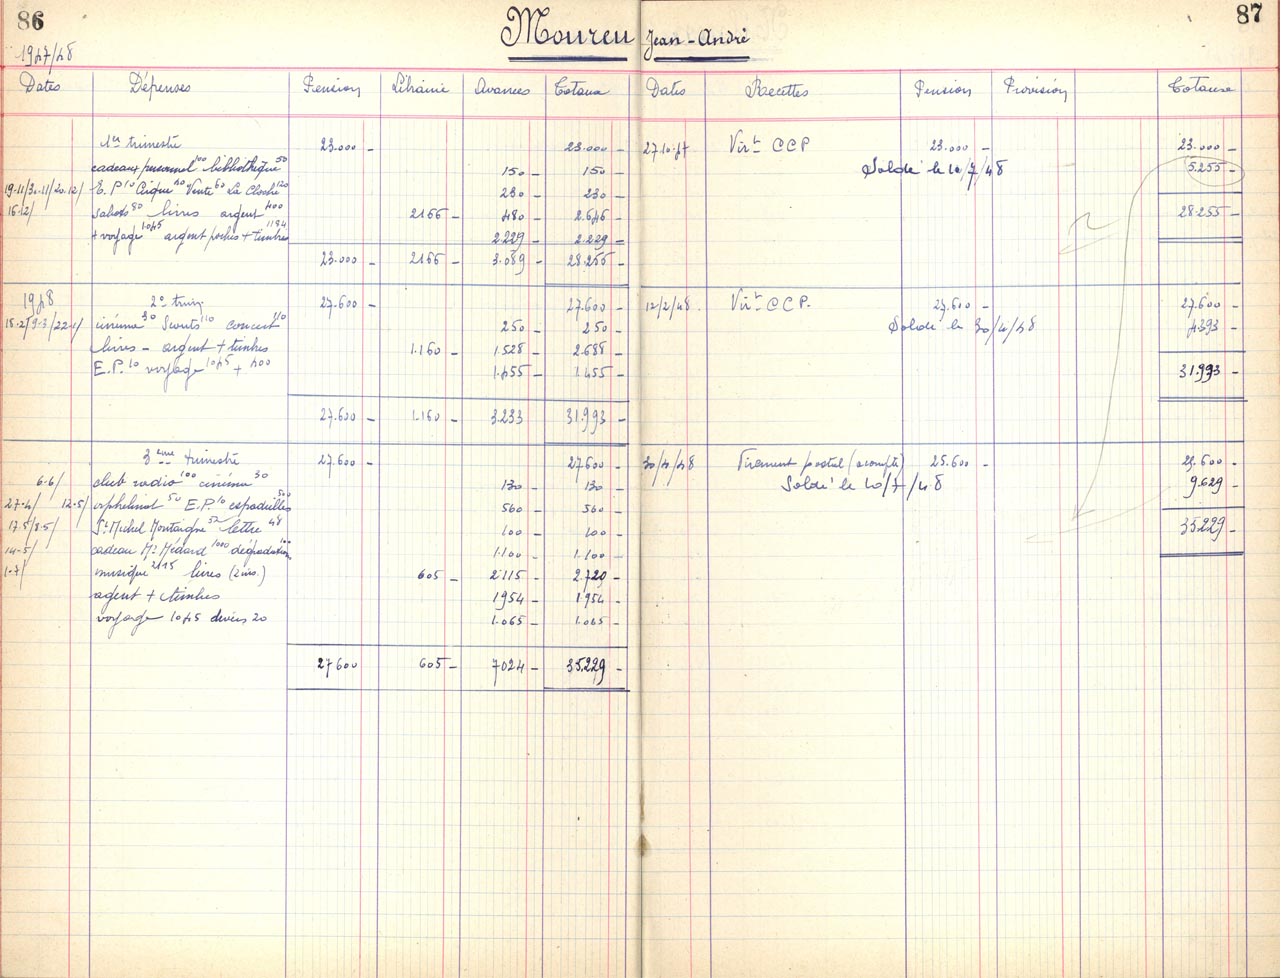 86
Moureu Jean-André
87
1947/48
Dates Dépenses Pension Librairie Avances Totaux Dates Recettes Pension Provision Totaux
1er trimestre 23.000 - 23.000 - 27.10.47 Virt CCP 23.000 - 23.000 -
cadeaux personnel 100 bibliothèque 50 150 - 150 - Soldé le 10/7/48 5.255 -
19.11/30.11/20.12/ E.P 10 Cirque 40 Vente 60 La Cloche 120 230 - 230 -
16.12/ Sabots 80 livres argent 400 2166 - 480 - 2.646 - 28.255 -
+ voyage 1045 argent poches + timbres 1184 2.229 - 2.229 -
23.000 - 2166 - 3.089 - 28.255 -
1948 2e trim. 27.600 - 27.600 - 12/2/48. Virt CCP. 27.600 - 27.600 -
15.2/9.3/22.1/ cinéma 30 Scouts 110 concert 110 250 - 250 - Soldé le 30/4/48 4393 -
livres - argent + timbres 1.160 - 1.528 - 2.688 -
E.P. 10 voyage 1045 + 400 1.455 - 1.455 - 31.993 -
27.600 - 1.160 - 3.233 31.993 -
3ème trimestre 27.600 - 27.600 - 30/4/48 Virement postal (acompte) 25.600 - 25.600 -
6.6/ club radio 100 cinéma 30 130 - 130 - Soldé le 10/7/48 9.629 -
27.4/ 12.5/ orphelinat 50 E.P 10 espadrilles 500 560 - 560 -
17.5/8.5/ St Michel Montaigne 52 lettre 48 100 - 100 - 35.229 -
14.5/ cadeau Mr Médard 1000 dégradations 100 1.100 - 1.100 -
1.7/ musique 2115 livres (2 ins.) 605 - 2115 - 2.720 -
argent + timbres 1954 - 1.954 -
voyage 1045 divers 20 1.065 - 1.065 -
27600 605 - 7024 - 35.229 -